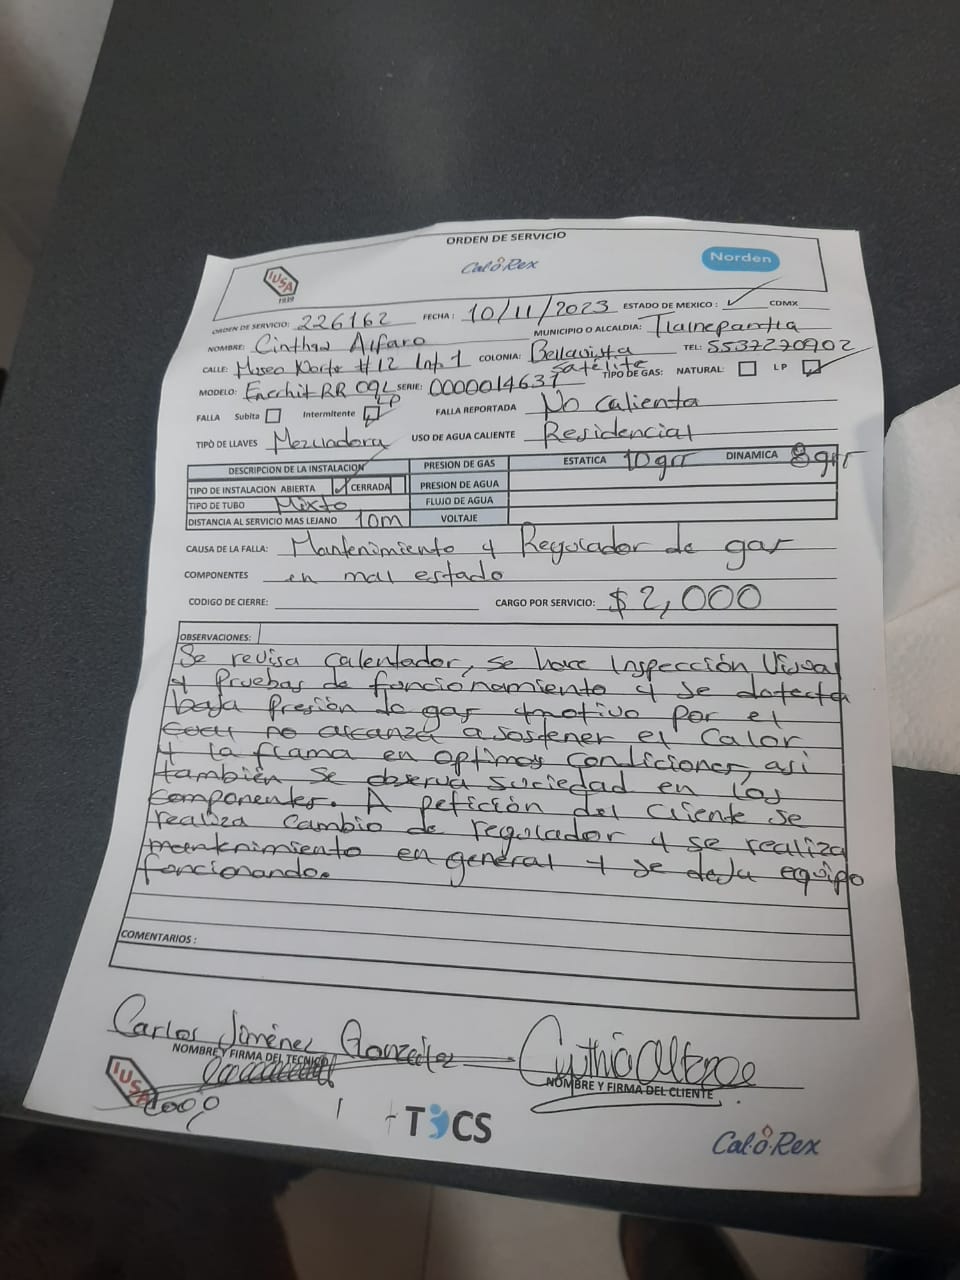 ORDEN DE SERVICIO
IUSA 1939 Cal-o-Rex Norden
ORDEN DE SERVICIO: 226162 FECHA: 10/11/2023 ESTADO DE MEXICO: ✓ CDMX
NOMBRE: Cinthya Alfaro MUNICIPIO O ALCALDIA: Tlalnepantla
CALLE: Museo Norte #12 Int. 1 COLONIA: Bellavista Satélite TEL: 5537270902
MODELO: RR 09L LP SERIE: 0000014637 TIPO DE GAS: NATURAL: LP ✓
FALLA Subita Intermitente ✓ FALLA REPORTADA No Calienta
TIPO DE LLAVES Mezcladora USO DE AGUA CALIENTE Residencial
DESCRIPCION DE LA INSTALACION PRESION DE GAS ESTATICA 10grr DINAMICA 8grr
TIPO DE INSTALACION ABIERTA ✓ CERRADA PRESION DE AGUA
TIPO DE TUBO Mixto FLUJO DE AGUA
DISTANCIA AL SERVICIO MAS LEJANO 10m VOLTAJE
CAUSA DE LA FALLA: Mantenimiento y Regulador de gas
COMPONENTES en mal estado
CODIGO DE CIERRE: CARGO POR SERVICIO: $2,000
OBSERVACIONES:
Se revisa calentador, se hace Inspección Visual
y Pruebas de funcionamiento y se detecta
baja Presión de gas motivo por el
cual no alcanza a sostener el Calor
y la flama en optimas condiciones, asi
también se observa suciedad en los
componentes. A petición del cliente se
realiza cambio de regulador y se realiza
mantenimiento en general y se deja equipo
funcionando.
COMENTARIOS:
Carlos Jiménez González
NOMBRE Y FIRMA DEL TECNICO
Cynthia Alfaro
NOMBRE Y FIRMA DEL CLIENTE
IUSA TICS Cal-o-Rex